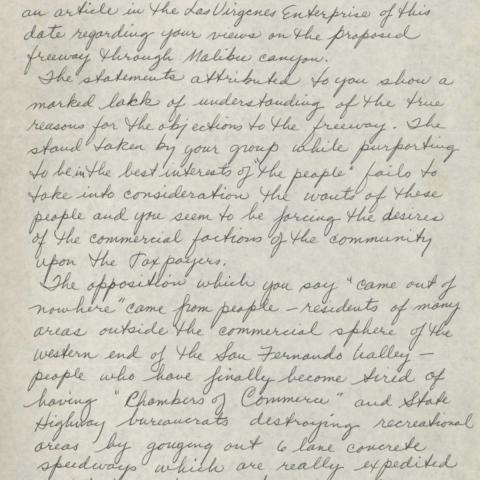 an article in the Las Virgenes Enterprise of this
date regarding your views on the proposed
freeway through Malibu canyon.
The statements attributed to you show a
marked lack of understanding of the true
reasons for the objections to the freeway. The
stand taken by your group while purporting
to be in the best interests of "the people" fails to
take into consideration the wants of these
people and you seem to be forcing the desires
of the commercial factions of the community
upon the Taxpayers.
The opposition which you say "came out of
nowhere" came from people – residents of many
areas outside the commercial sphere of the
western end of the San Fernando Valley –
people who have finally become tired of
having "Chambers of Commerce" and State
Highway bureaucrats destroying recreational
areas by gouging out 6 lane concrete
speedways which are really expedited